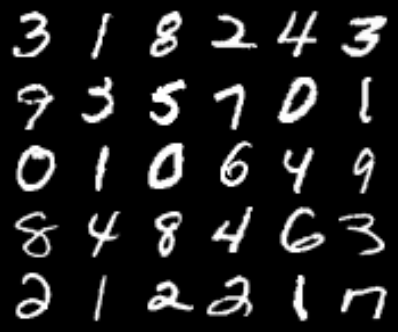 3 1 8 2 4 3
9 3 5 7 0 1
0 1 0 6 4 9
8 4 8 4 6 3
2 1 2 2 1 7